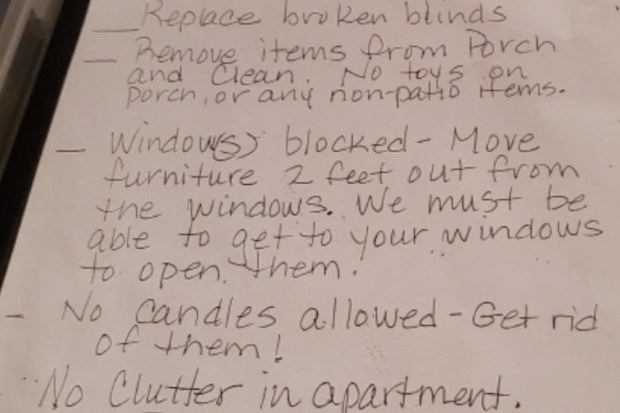 __ Replace broken blinds
__ Remove items from Porch
and Clean. No toys on
porch, or any non-patio items.
_ Window(s) blocked - Move
furniture 2 feet out from
the windows. We must be
able to get to your windows
to open them.
- No candles allowed - Get rid
of them!
No Clutter in apartment.